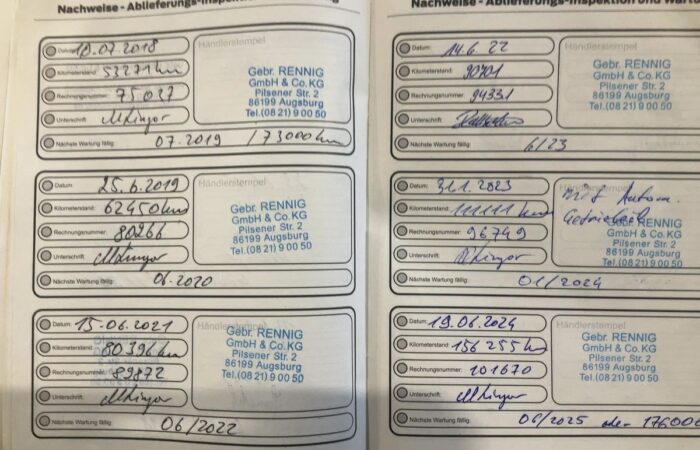 Nachweise - Ablieferungs-Inspektion
Datum: 10.07.2018
Kilometerstand: 53271 km
Rechnungsnummer: 75027
Unterschrift:
Nächste Wartung fällig: 07.2019 / 73000 km
Händlerstempel
Gebr. RENNIG
GmbH & Co.KG
Pilsener Str. 2
86199 Augsburg
Tel.(08 21) 9 00 50
Datum: 25.6.2019
Kilometerstand: 62450 km
Rechnungsnummer: 80266
Unterschrift:
Nächste Wartung fällig: 06.2020
Händlerstempel
Gebr. RENNIG
GmbH & Co.KG
Pilsener Str. 2
86199 Augsburg
Tel.(08 21) 9 00 50
Datum: 15.06.2021
Kilometerstand: 80396 km
Rechnungsnummer: 89872
Unterschrift:
Nächste Wartung fällig: 06/2022
Händlerstempel
Gebr. RENNIG
GmbH & Co.KG
Pilsener Str. 2
86199 Augsburg
Tel.(08 21) 9 00 50
Nachweise - Ablieferungs-Inspektion und
Datum: 14.6.22
Kilometerstand:
Rechnungsnummer: 94331
Unterschrift:
Nächste Wartung fällig: 6/23
Händlerstempel
Gebr. RENNIG
GmbH & Co.KG
Pilsener Str. 2
86199 Augsburg
Tel.(08 21) 9 00 50
Datum: 31.1.2023
Kilometerstand: 111111 km
Rechnungsnummer: 96749
Unterschrift:
Nächste Wartung fällig: 01/2024
Händlerstempel
mit Autom.
Gebr. RENNIG
GmbH & Co.KG
Pilsener Str. 2
86199 Augsburg
Tel.(08 21) 9 00 50
Datum: 19.06.2024
Kilometerstand: 156 255 km
Rechnungsnummer: 101670
Unterschrift:
Nächste Wartung fällig: 06/2025 oder 176000
Händlerstempel
Gebr. RENNIG
GmbH & Co.KG
Pilsener Str. 2
86199 Augsburg
Tel.(08 21) 9 00 50